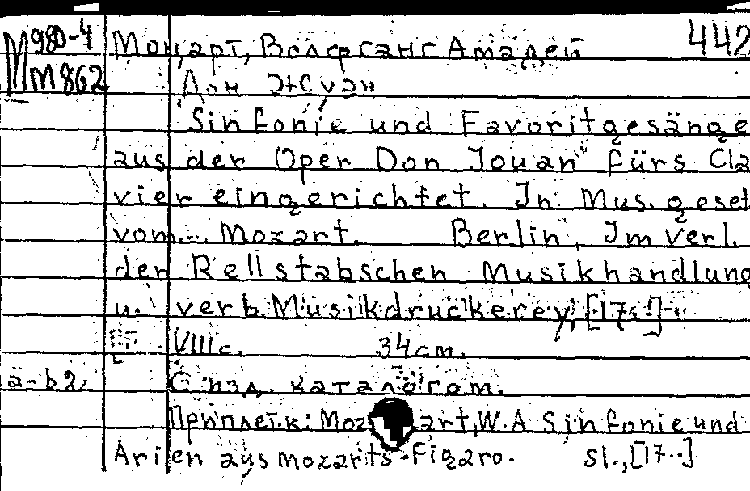 М980-4 Моцарт, Волфганг Амадей 442
М862 Дон Жуан
Sinfonie und Favoritgesänge
aus der Oper Don Jouan fürs Cla
vier eingerichtet. In Mus. geset
von... Mozart. Berlin, Im verl.
der Rellstabschen Musikhandlung
u. verb Musikdruckerey, [17
VIII с. 34 cm.
a-b2. С изд. каталогом.
Приплет. к: Mozart, W.A Sinfonie und
Arien aus mozarts Figaro. Sl., [17..]